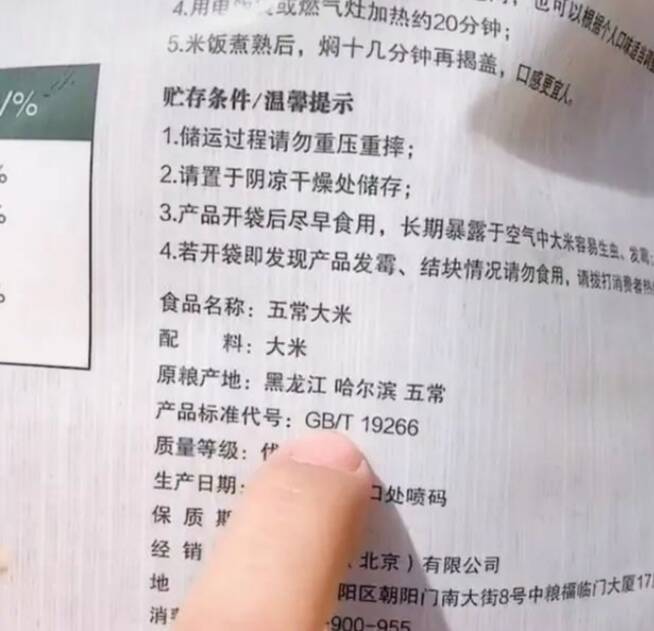 4.用电饭煲或燃气灶加热约20分钟；
也可以根据个人口味适当调整
5.米饭煮熟后，焖十几分钟再揭盖，口感更宜人。
/%
贮存条件/温馨提示
1.储运过程请勿重压重摔；
2.请置于阴凉干燥处储存；
3.产品开袋后尽早食用，长期暴露于空气中大米容易生虫、发霉；
4.若开袋即发现产品发霉、结块情况请勿食用，请拨打消费者热
食品名称：五常大米
配 料：大米
原粮产地：黑龙江 哈尔滨 五常
产品标准代号：GB/T 19266
质量等级：优
生产日期： 口处喷码
保 质 期
经 销 （北京）有限公司
地 阳区朝阳门南大街8号中粮福临门大厦17
消费 -900-955